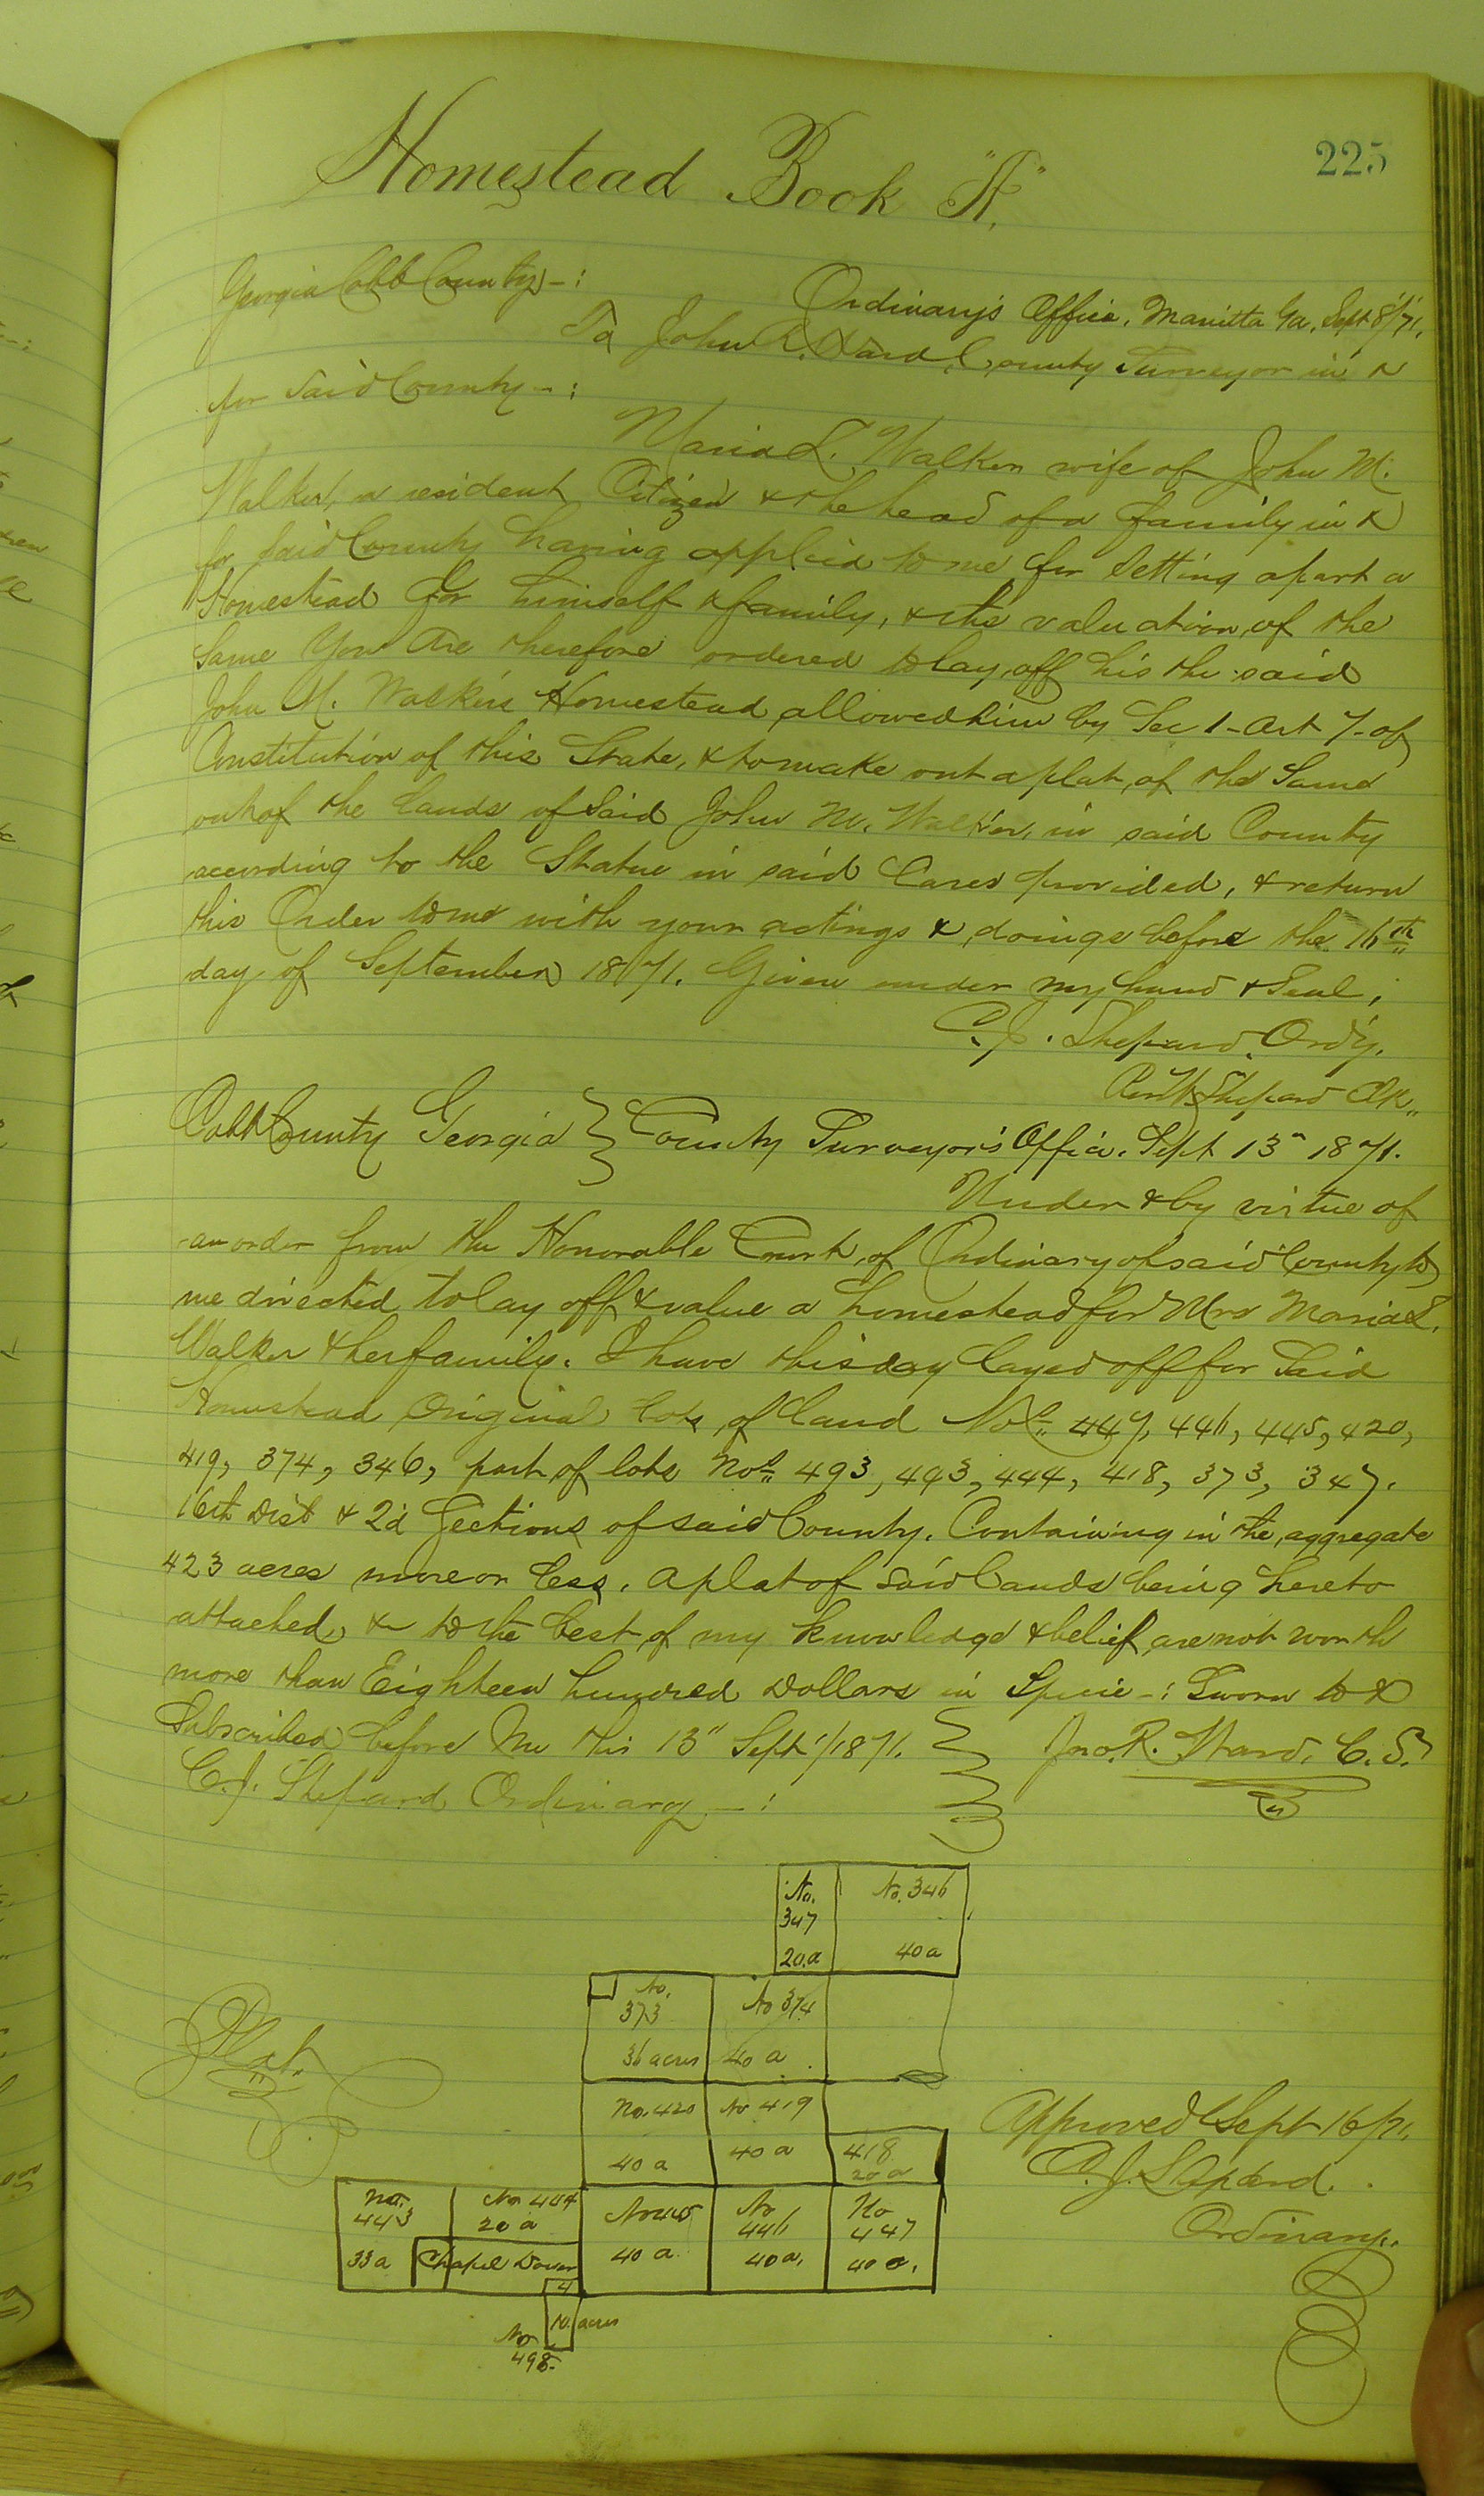 225
Homestead Book "A".
Georgia Cobb County -:
Ordinary's Office, Marietta Ga, Sept 8"/71.
To John R. Ward, County Surveyor in &
for said County -:
Maria L. Walker wife of John M.
Walker, a resident Citizen & the head of a family in &
for said County having applied to me for Setting apart a
Homestead for himself & family, & the valuation, of the
Same You are therefore ordered to lay, off his the said
John M. Walkers Homestead allowed him by Sec 1 - Art 7 - of
Constitution of this State, & to make out a plat, of the Same
out of the lands of said John M. Walker, in said County
according to the Statue in said Cases provided, & return
this Order to me with your actings & doings before the 16th
day of September 1871. Given under my hand & Seal,
C. J. Shepard, Ord'y.
Shepard Clk,,
Cobb County Georgia } County Surveyor's Office. Sept 13" 1871.
Under & by virtue of
an order from the Honorable Court, of Ordinary of said County to
me directed to lay off & value a homestead for Mrs Maria L.
Walker & her family. I have this day layed off for Said
Homestead Original Lots, of Land Nos. 447, 446, 445, 420,
419, 374, 346, part of lots Nos 493, 443, 444, 418, 373, 347.
16th Dist & 2d Sections of said County. Containing in the, aggregate
423 acres more or less. A plat of said lands being hereto
attached, & to the best of my knowledge & belief, are not worth
more than Eighteen hundred Dollars in Specie -: Sworn to &
Subscribed before Me this 13" Sept 1871. } Jno. R. Ward, C. S.
C. J. Shepard Ordinary -:
No. 347 20.a
No. 346 40 a
No. 373 36 acres
No 374 40 a
Plat.
No. 420 40 a
No 419 40 a
418 20 a
Approved Sept 16/71.
C. J. Shepard.
Ordinary.
No. 443 33 a
No 444 20 a
No 445 40 a
No 446 40 a.
No 447 40 a.
Chapel Dower
4
10 acres
No 498